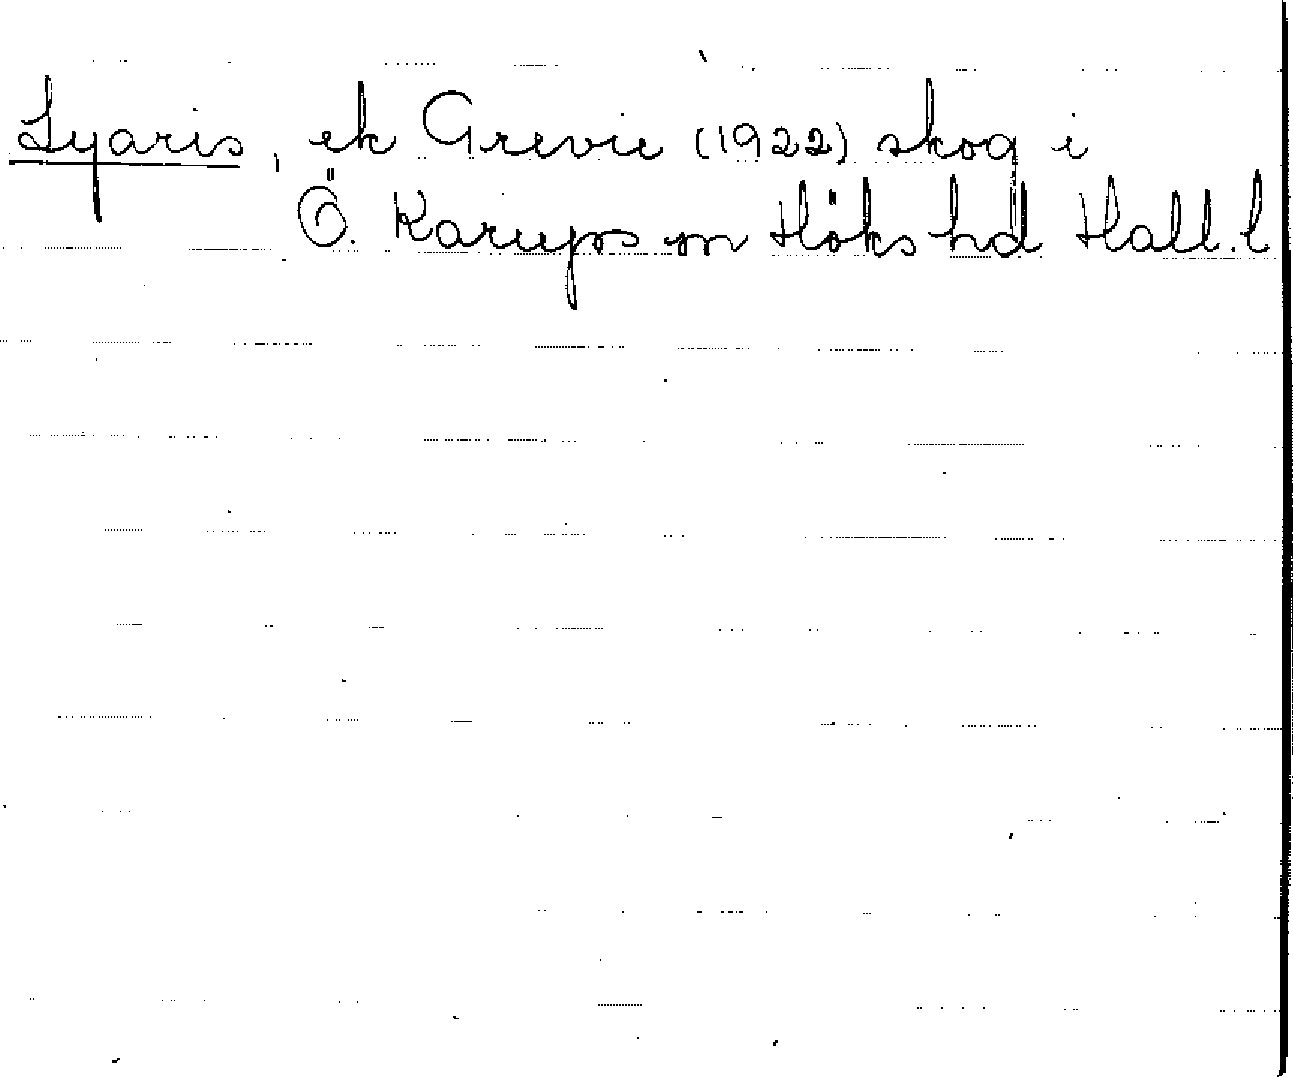 Lyaris, ek Grevie (1922) skog i
Ö. Karups sn Höks hd Hall. l